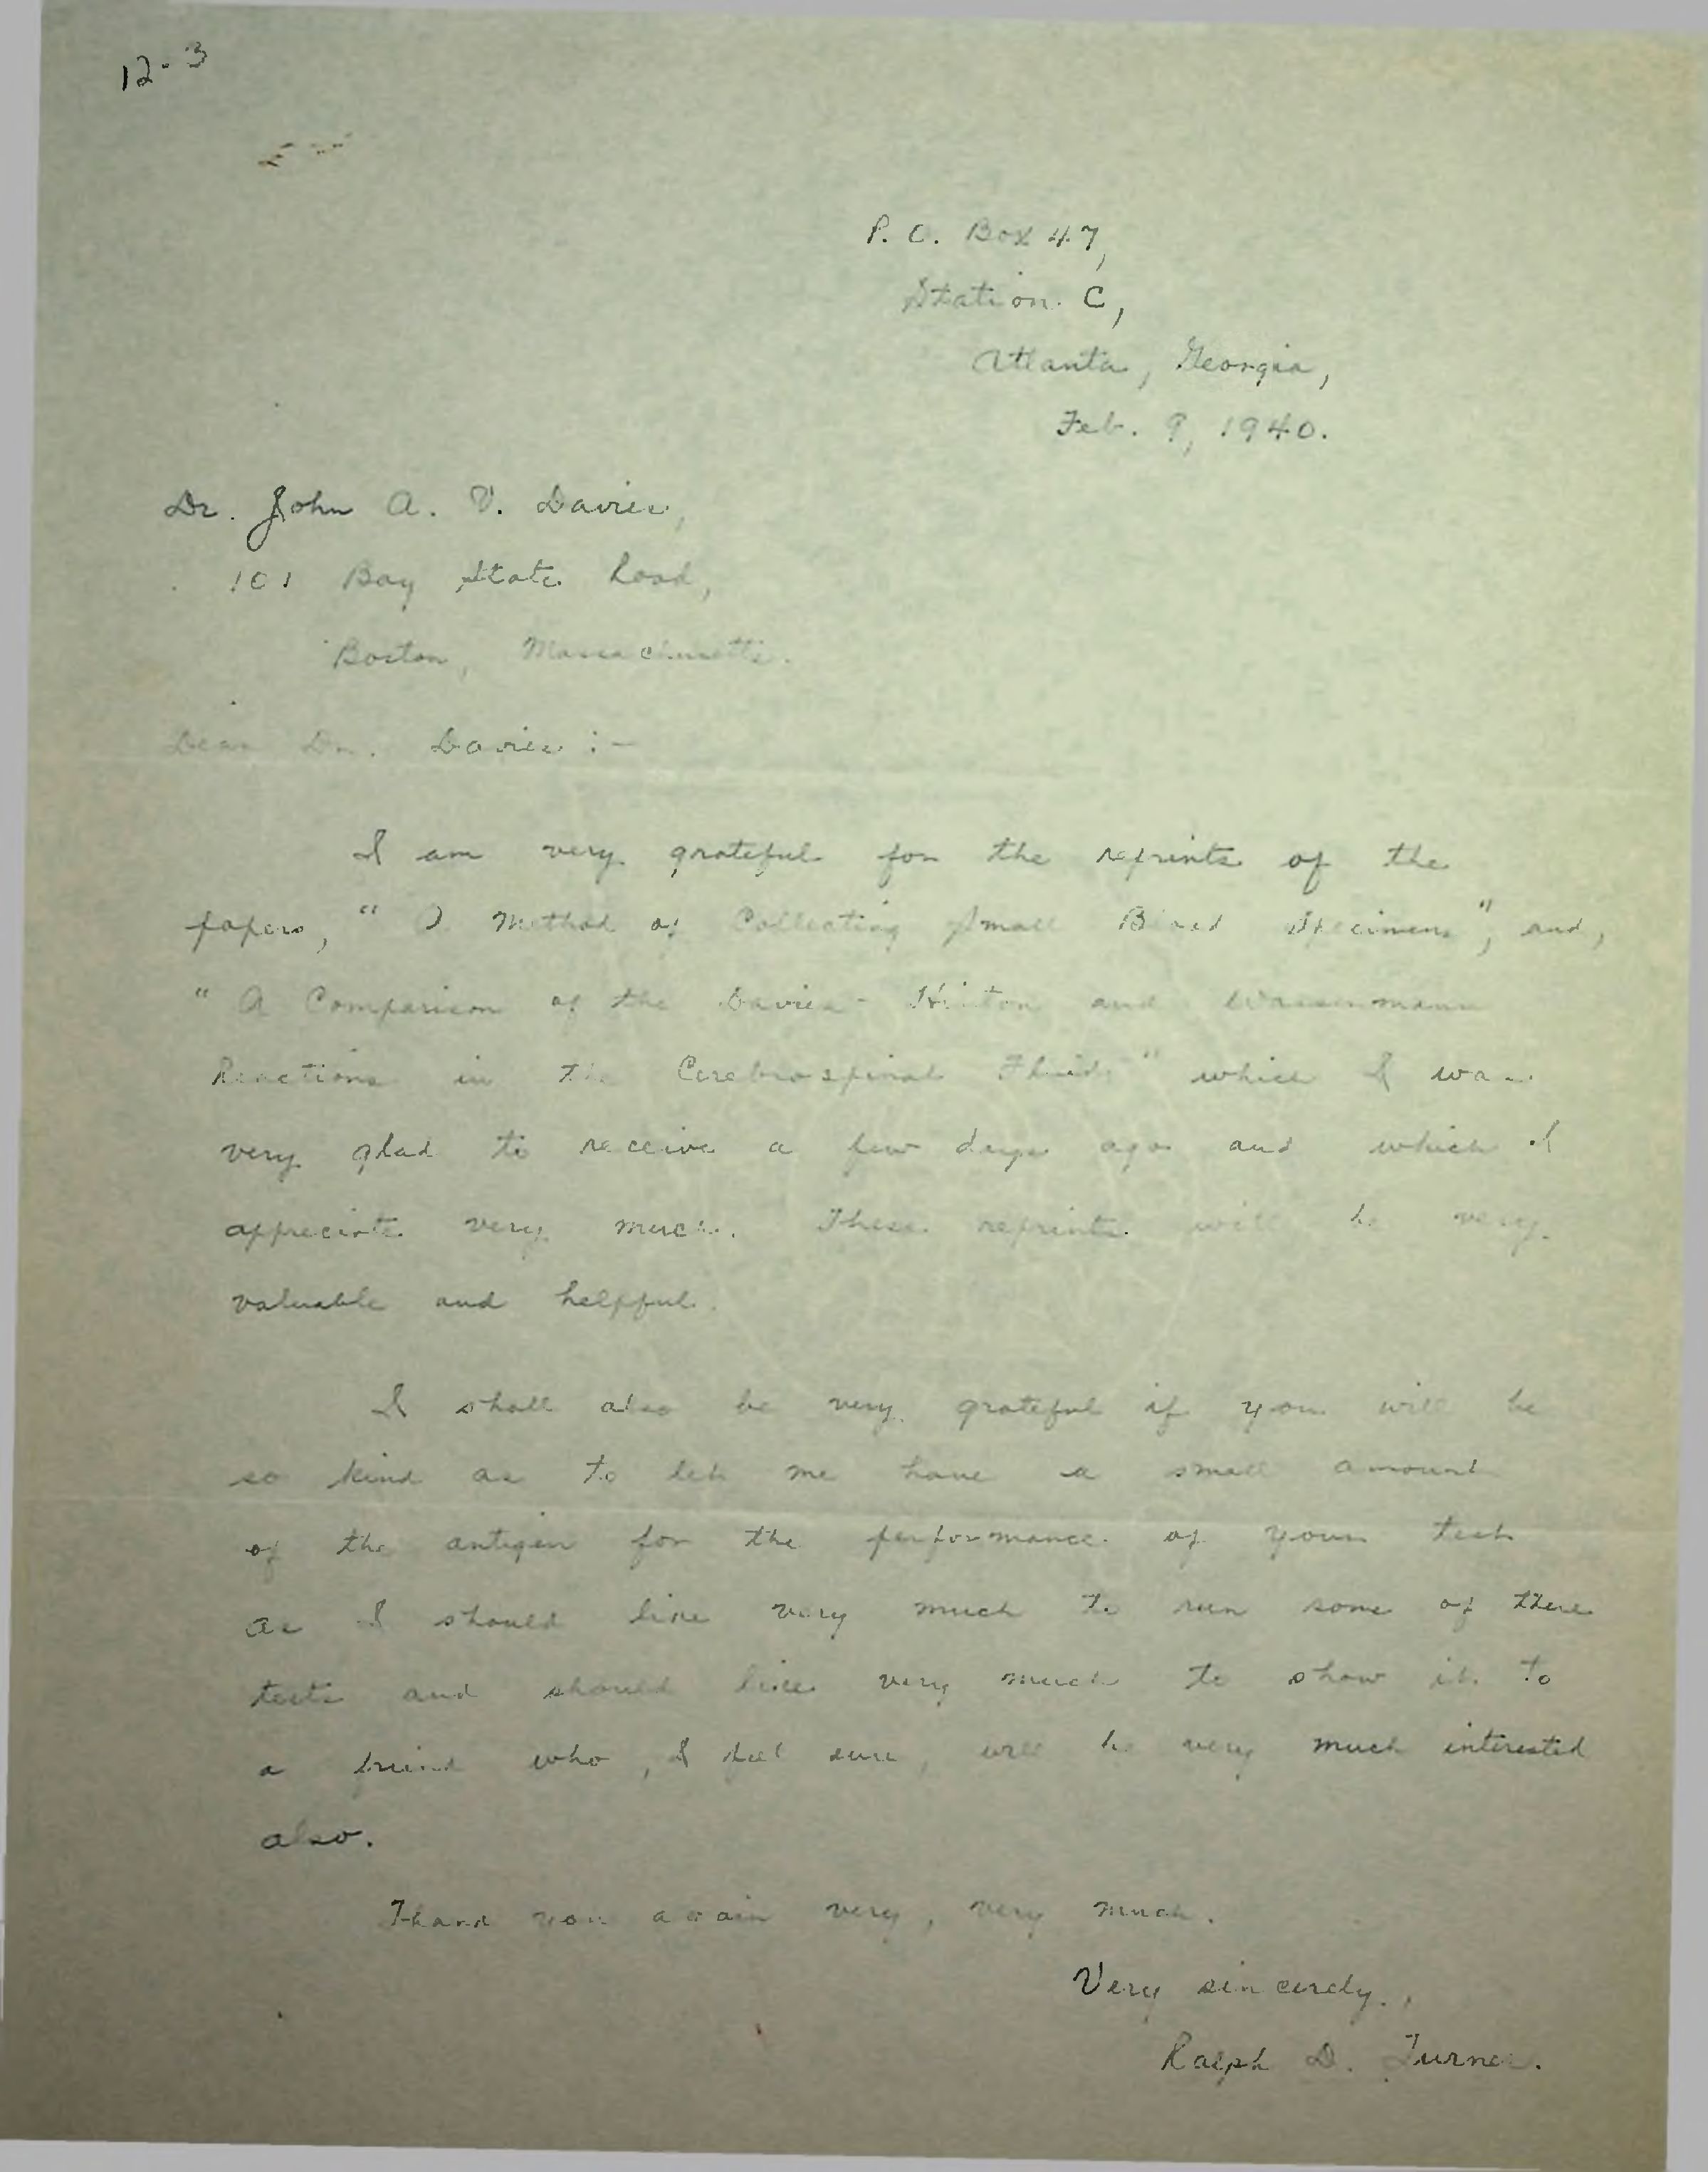 12-3
P. O. Box 47,
Station C,
Atlanta, Georgia,
Feb. 9, 1940.
Dr. John A. V. Davies,
101 Bay State Road,
Boston, Massachusetts.
Dear Dr. Davies :-
I am very grateful for the reprints of the
papers, "A Method of Collecting Small Blood Specimens", and,
"A Comparison of the Davies-Hinton and Wassermann
Reactions in the Cerebrospinal Fluid" which I was
very glad to receive a few days ago and which I
appreciate very much. These reprints will be very
valuable and helpful.
I shall also be very grateful if you will be
so kind as to let me have a small amount
of the antigen for the performance of your test
as I should like very much to run some of these
tests and should like very much to show it to
a friend who, I feel sure, will be very much interested
also.
Thank you again very, very much.
Very sincerely,
Ralph D. Turner.